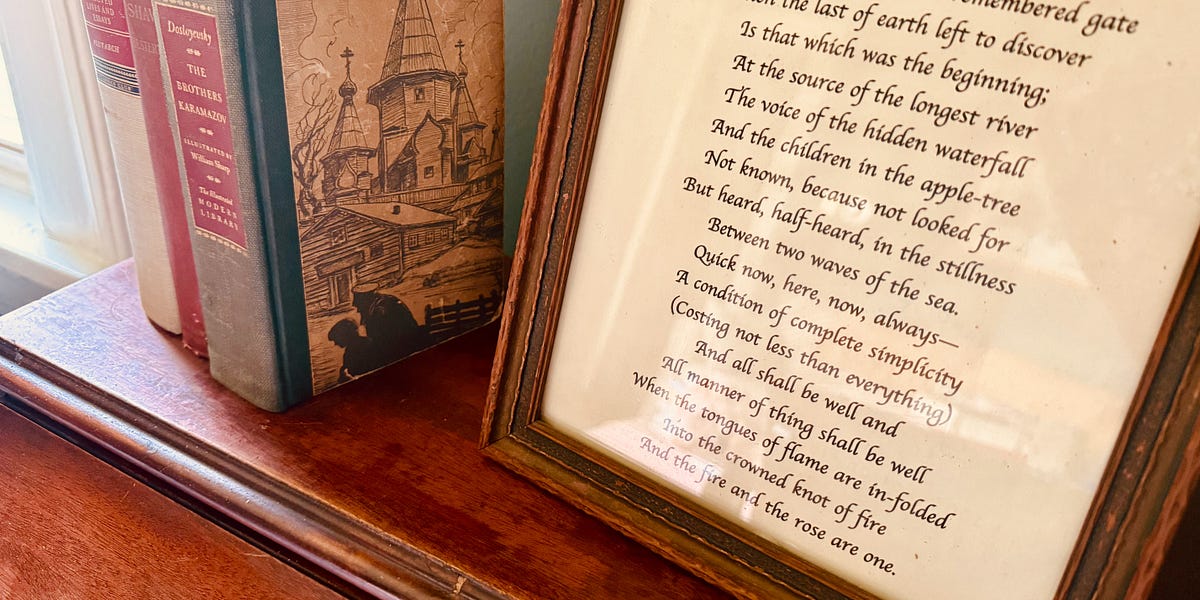 SELECTED
LIVES AND
ESSAYS
PLUTARCH
Dostoyevsky
THE
BROTHERS
KARAMAZOV
ILLUSTRATED BY
William Sharp
The Illustrated
MODERN
LIBRARY
remembered gate
the last of earth left to discover
Is that which was the beginning;
At the source of the longest river
The voice of the hidden waterfall
And the children in the apple-tree
Not known, because not looked for
But heard, half-heard, in the stillness
Between two waves of the sea.
Quick now, here, now, always—
A condition of complete simplicity
(Costing not less than everything)
And all shall be well and
All manner of thing shall be well
When the tongues of flame are in-folded
Into the crowned knot of fire
And the fire and the rose are one.